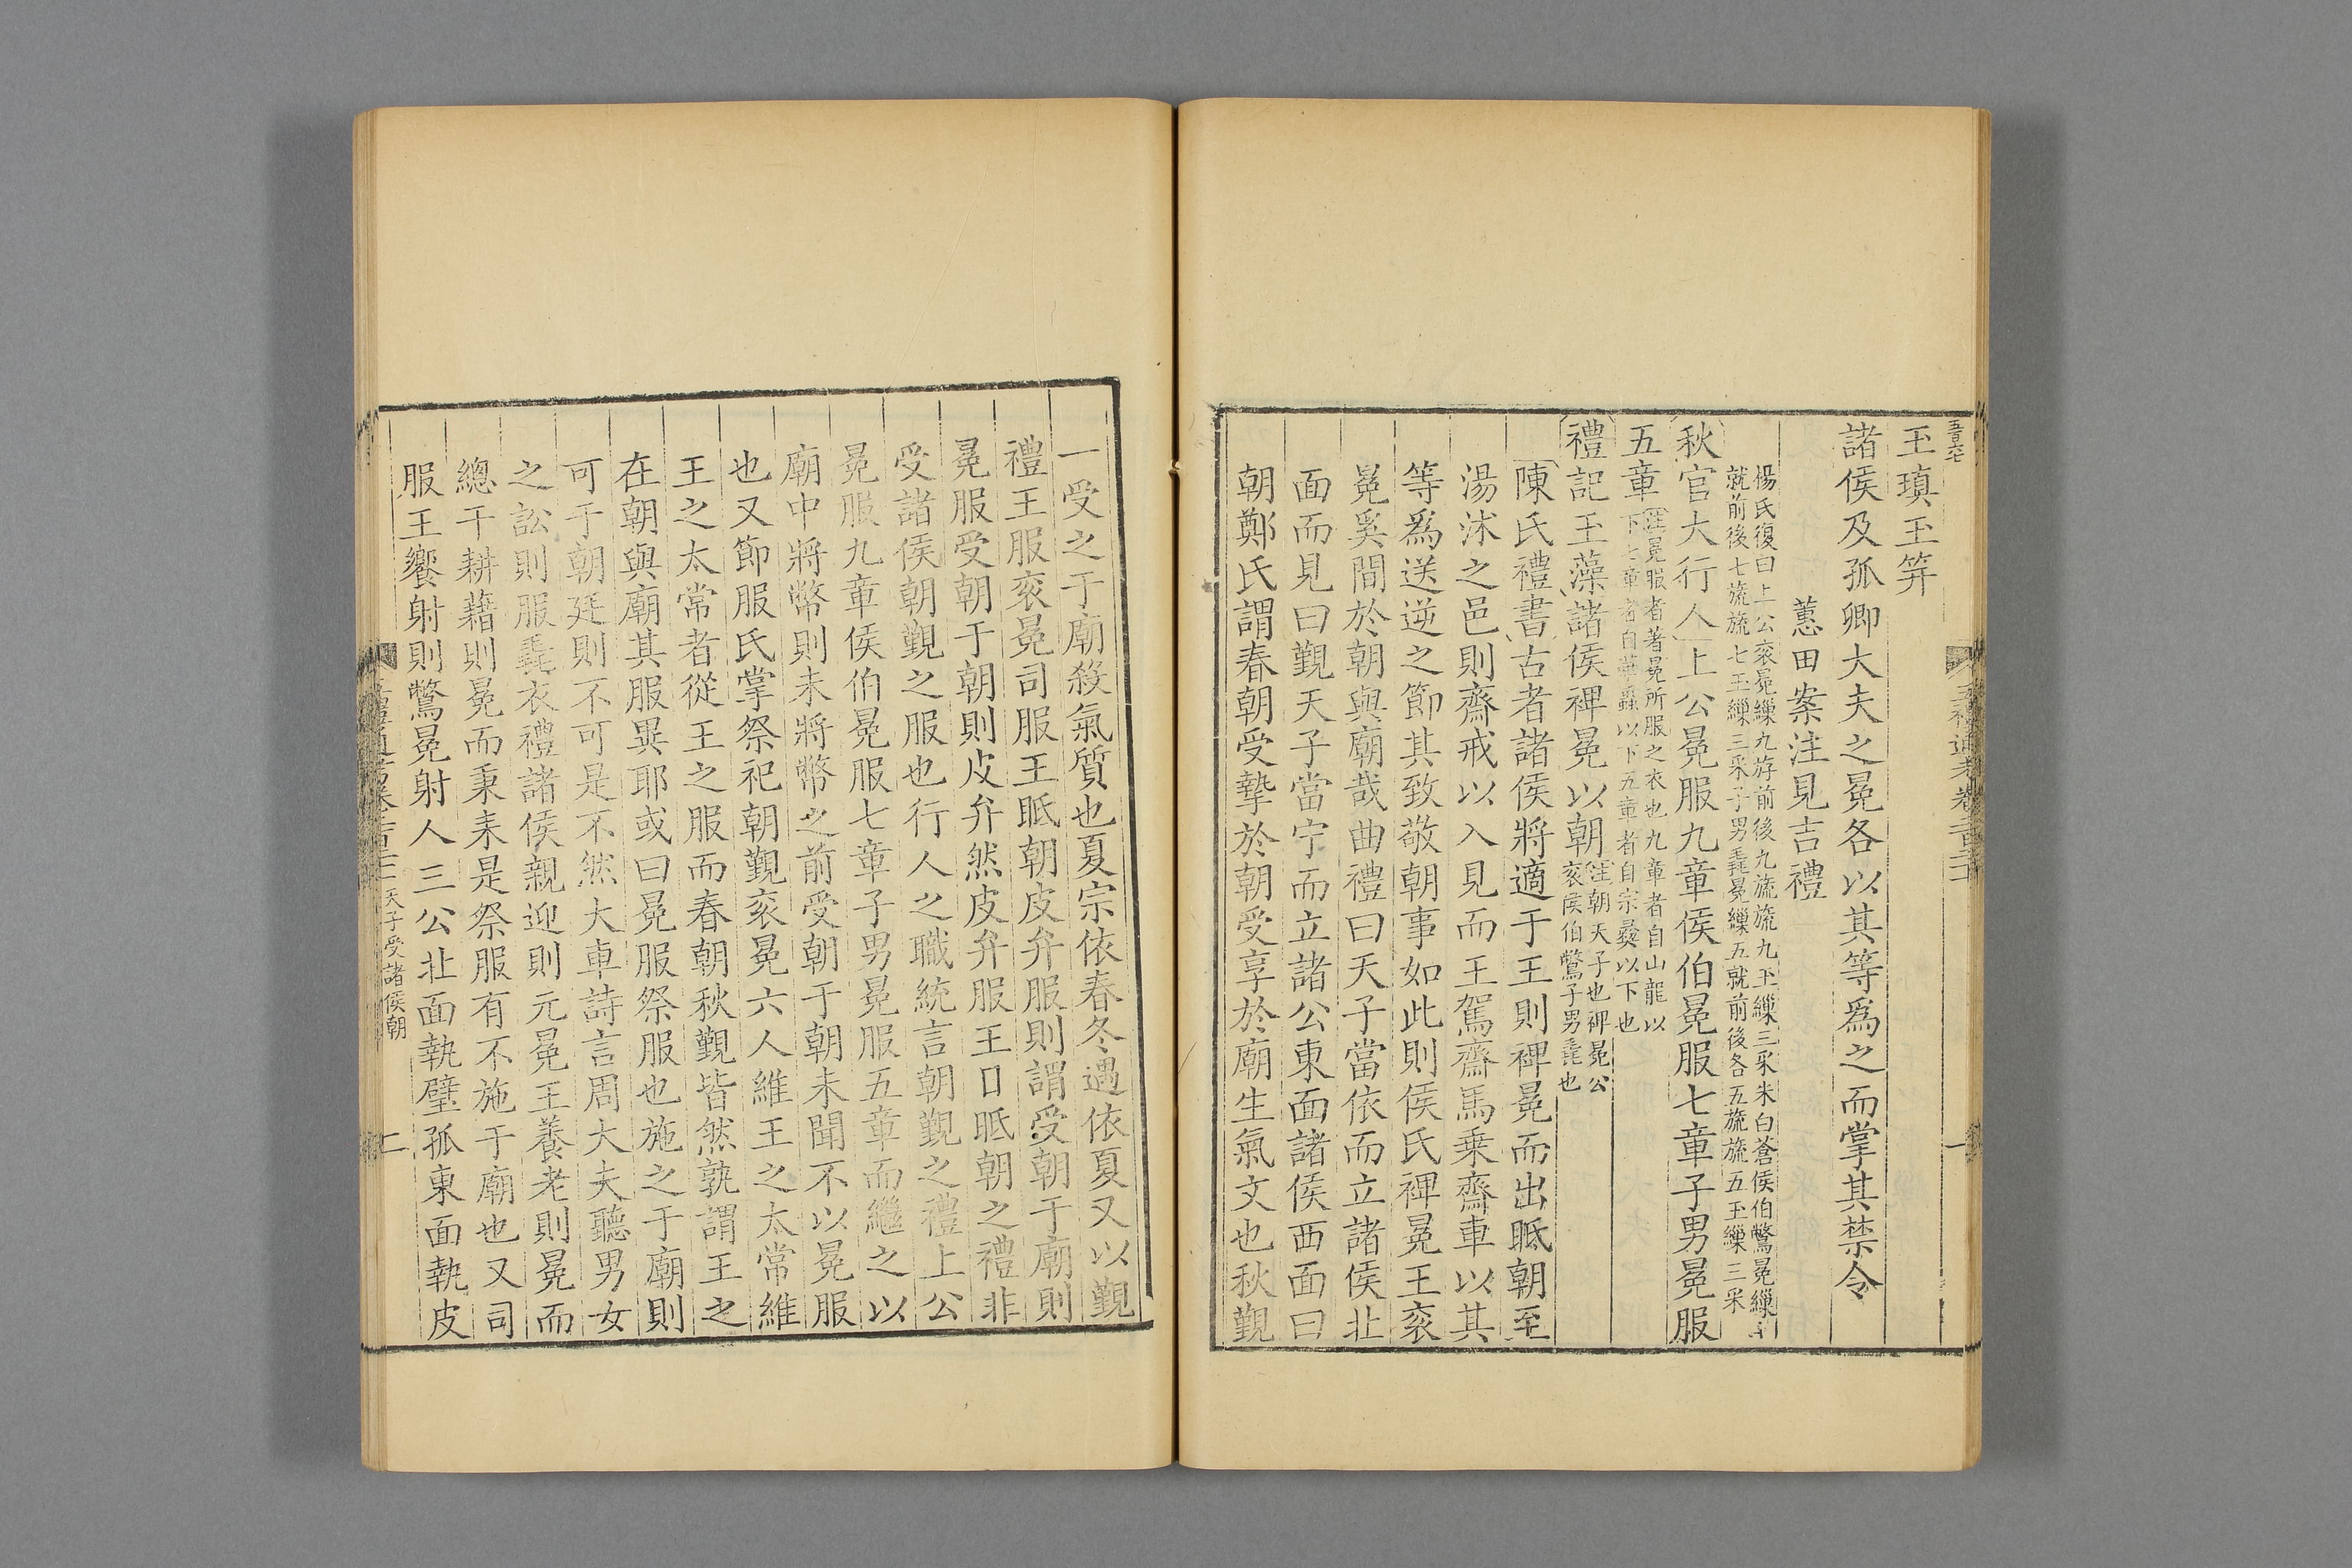 五百六七
玉瑱玉筓
諸侯及孤卿大夫之冕各以其等爲之而掌其禁令
蕙田案注見吉禮
楊氏復曰上公衮冕繅九斿前後九旒旒九玉繅三采朱白蒼侯伯鷩冕繅七
就前後七旒旒七玉繅三采子男毳冕繅五就前後各五旒旒五玉繅三采
秋官大行人上公冕服九章侯伯冕服七章子男冕服
五章注冕服者著冕所服之衣也九章者自山龍以
下七章者自華蟲以下五章者自宗彝以下也
禮記玉藻諸侯裨冕以朝注朝天子也裨冕公
衮侯伯鷩子男毳也
陳氏禮書古者諸侯將適于王則裨冕而出眡朝至
湯沐之邑則齋戒以入見而王駕齋馬乗齋車以其
等爲送逆之節其致敬朝事如此則侯氏裨冕王衮
冕奚間於朝與廟哉曲禮曰天子當依而立諸侯北
面而見曰覲天子當宁而立諸公東面諸侯西面曰
朝鄭氏謂春朝受摯於朝受享於廟生氣文也秋覲
一受之于廟殺氣質也夏宗依春冬遇依夏又以覲
禮王服衮冕司服王眡朝皮弁服則謂受朝于廟則
冕服受朝于朝則皮弁然皮弁服王日眡朝之禮非
受諸侯朝覲之服也行人之職統言朝覲之禮上公
冕服九章侯伯冕服七章子男冕服五章而繼之以
廟中將幣則未將幣之前受朝于朝未聞不以冕服
也又節服氏掌祭祀朝覲衮冕六人維王之太常維
王之太常者從王之服而春朝秋覲皆然孰謂王之
在朝與廟其服異耶或曰冕服祭服也施之于廟則
可于朝廷則不可是不然大車詩言周大夫聽男女
之訟則服毳衣禮諸侯親迎則元冕王養老則冕而
總干耕藉則冕而秉耒是祭服有不施于廟也又司
服王饗射則鷩冕射人三公北面執璧孤東面執皮
天子受諸侯朝
二